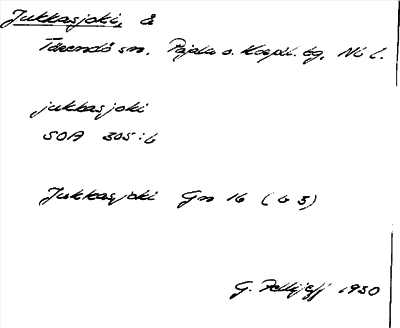 Jukkasjoki, å
Tärendö sn. Pajala o. Korpil. tg. Nb l.
jukkasjoki
SOA 305:6
Jukkasjoki Gn 16 (b 3)
G. Pellijeff 1950